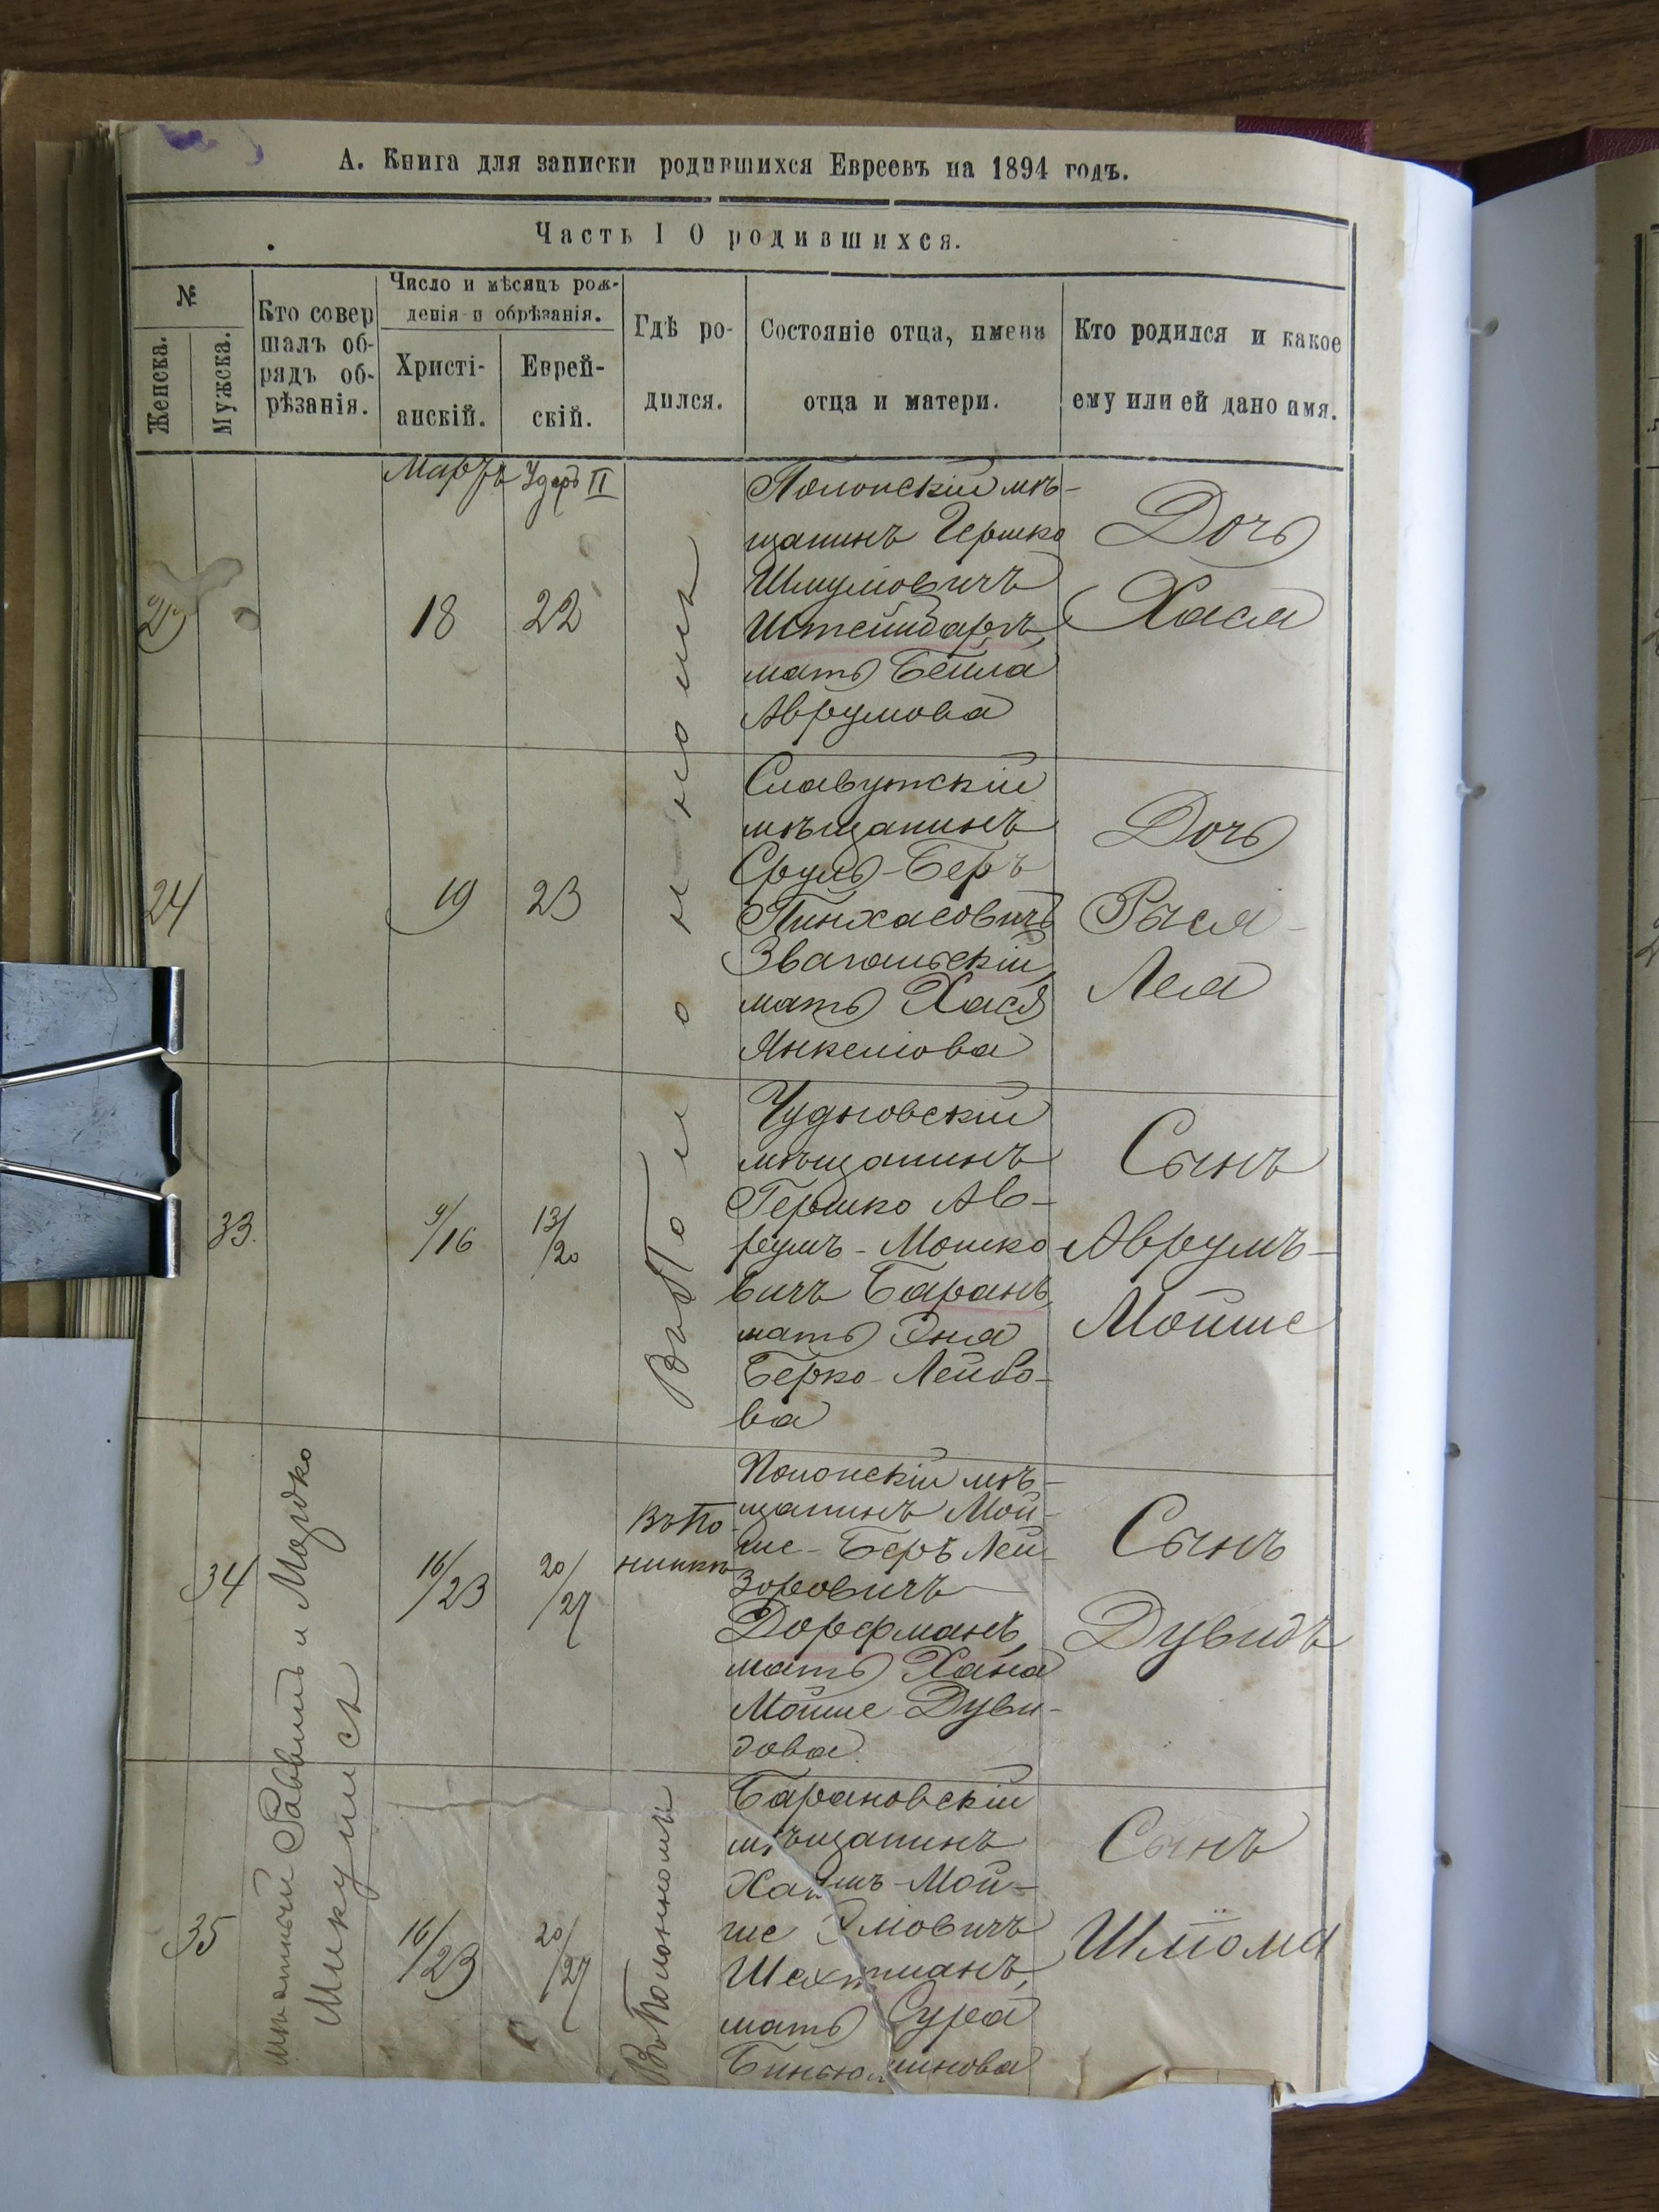 А. Книга для записки родившихся Евреевъ на 1894 годъ.
Часть I О родившихся.
№
Женска.
Мужска.
Кто совер
шалъ об-
рядъ об-
рѣзанія.
Число и мѣсяцъ рож-
денія и обрѣзанія.
Христі-
анскій.
Еврей-
скій.
Гдѣ ро-
дился.
Состояніе отца, имена
отца и матери.
Кто родился и какое
ему или ей дано имя.
Мартъ
Адеръ II
18
22
Въ Полонномъ
Полонскій мѣ-
щанинъ Гершко
Шмулювичъ
Штейнбаргъ,
мать Бейла
Аврумова
Дочь
Хася
24
19
23
Славутскій
мѣщанинъ
Сруль-Беръ
Пинхасовичъ
Звагальскій,
мать Хася
Янкелова
Дочь
Рыся-
Лея
33.
9/16
13/20
Чудновскій
мѣщанинъ
Гершко Ав-
румъ-Мошко
вичъ Баранъ,
мать Эня
Берко-Лейбо-
ва
Сынъ
Аврумъ-
Мойше
мѣстный Раввинъ и Мордко
Микулисъ
34
16/23
20/27
Полонскій мѣ-
щанинъ Мой-
ше-Беръ Лей-
зоровичъ
Дорфманъ,
мать Хана
Мойше-Дуви-
дова
Сынъ
Дувидъ
35
16/23
20/27
Въ Полонномъ
Барановскій
мѣщанинъ
Хаимъ-Мой-
ше
Шехтманъ,
мать Сура
Биньюминова
Сынъ
Шлёма